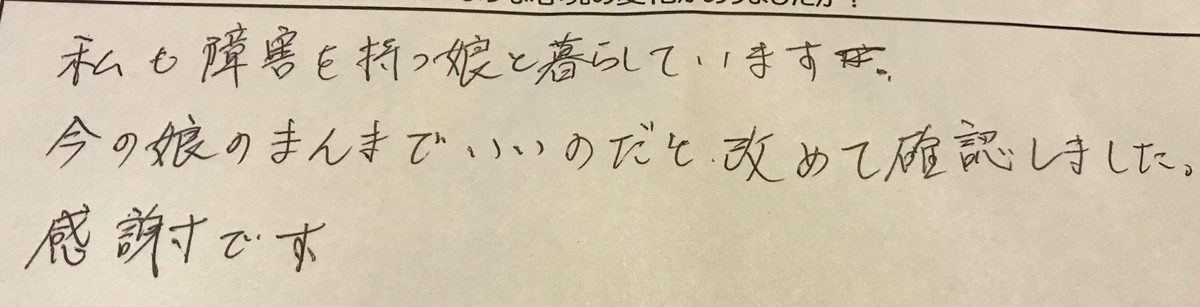 私も障害を持つ娘と暮らしています。
今の娘のまんまでいいのだと、改めて確認しました。
感謝です